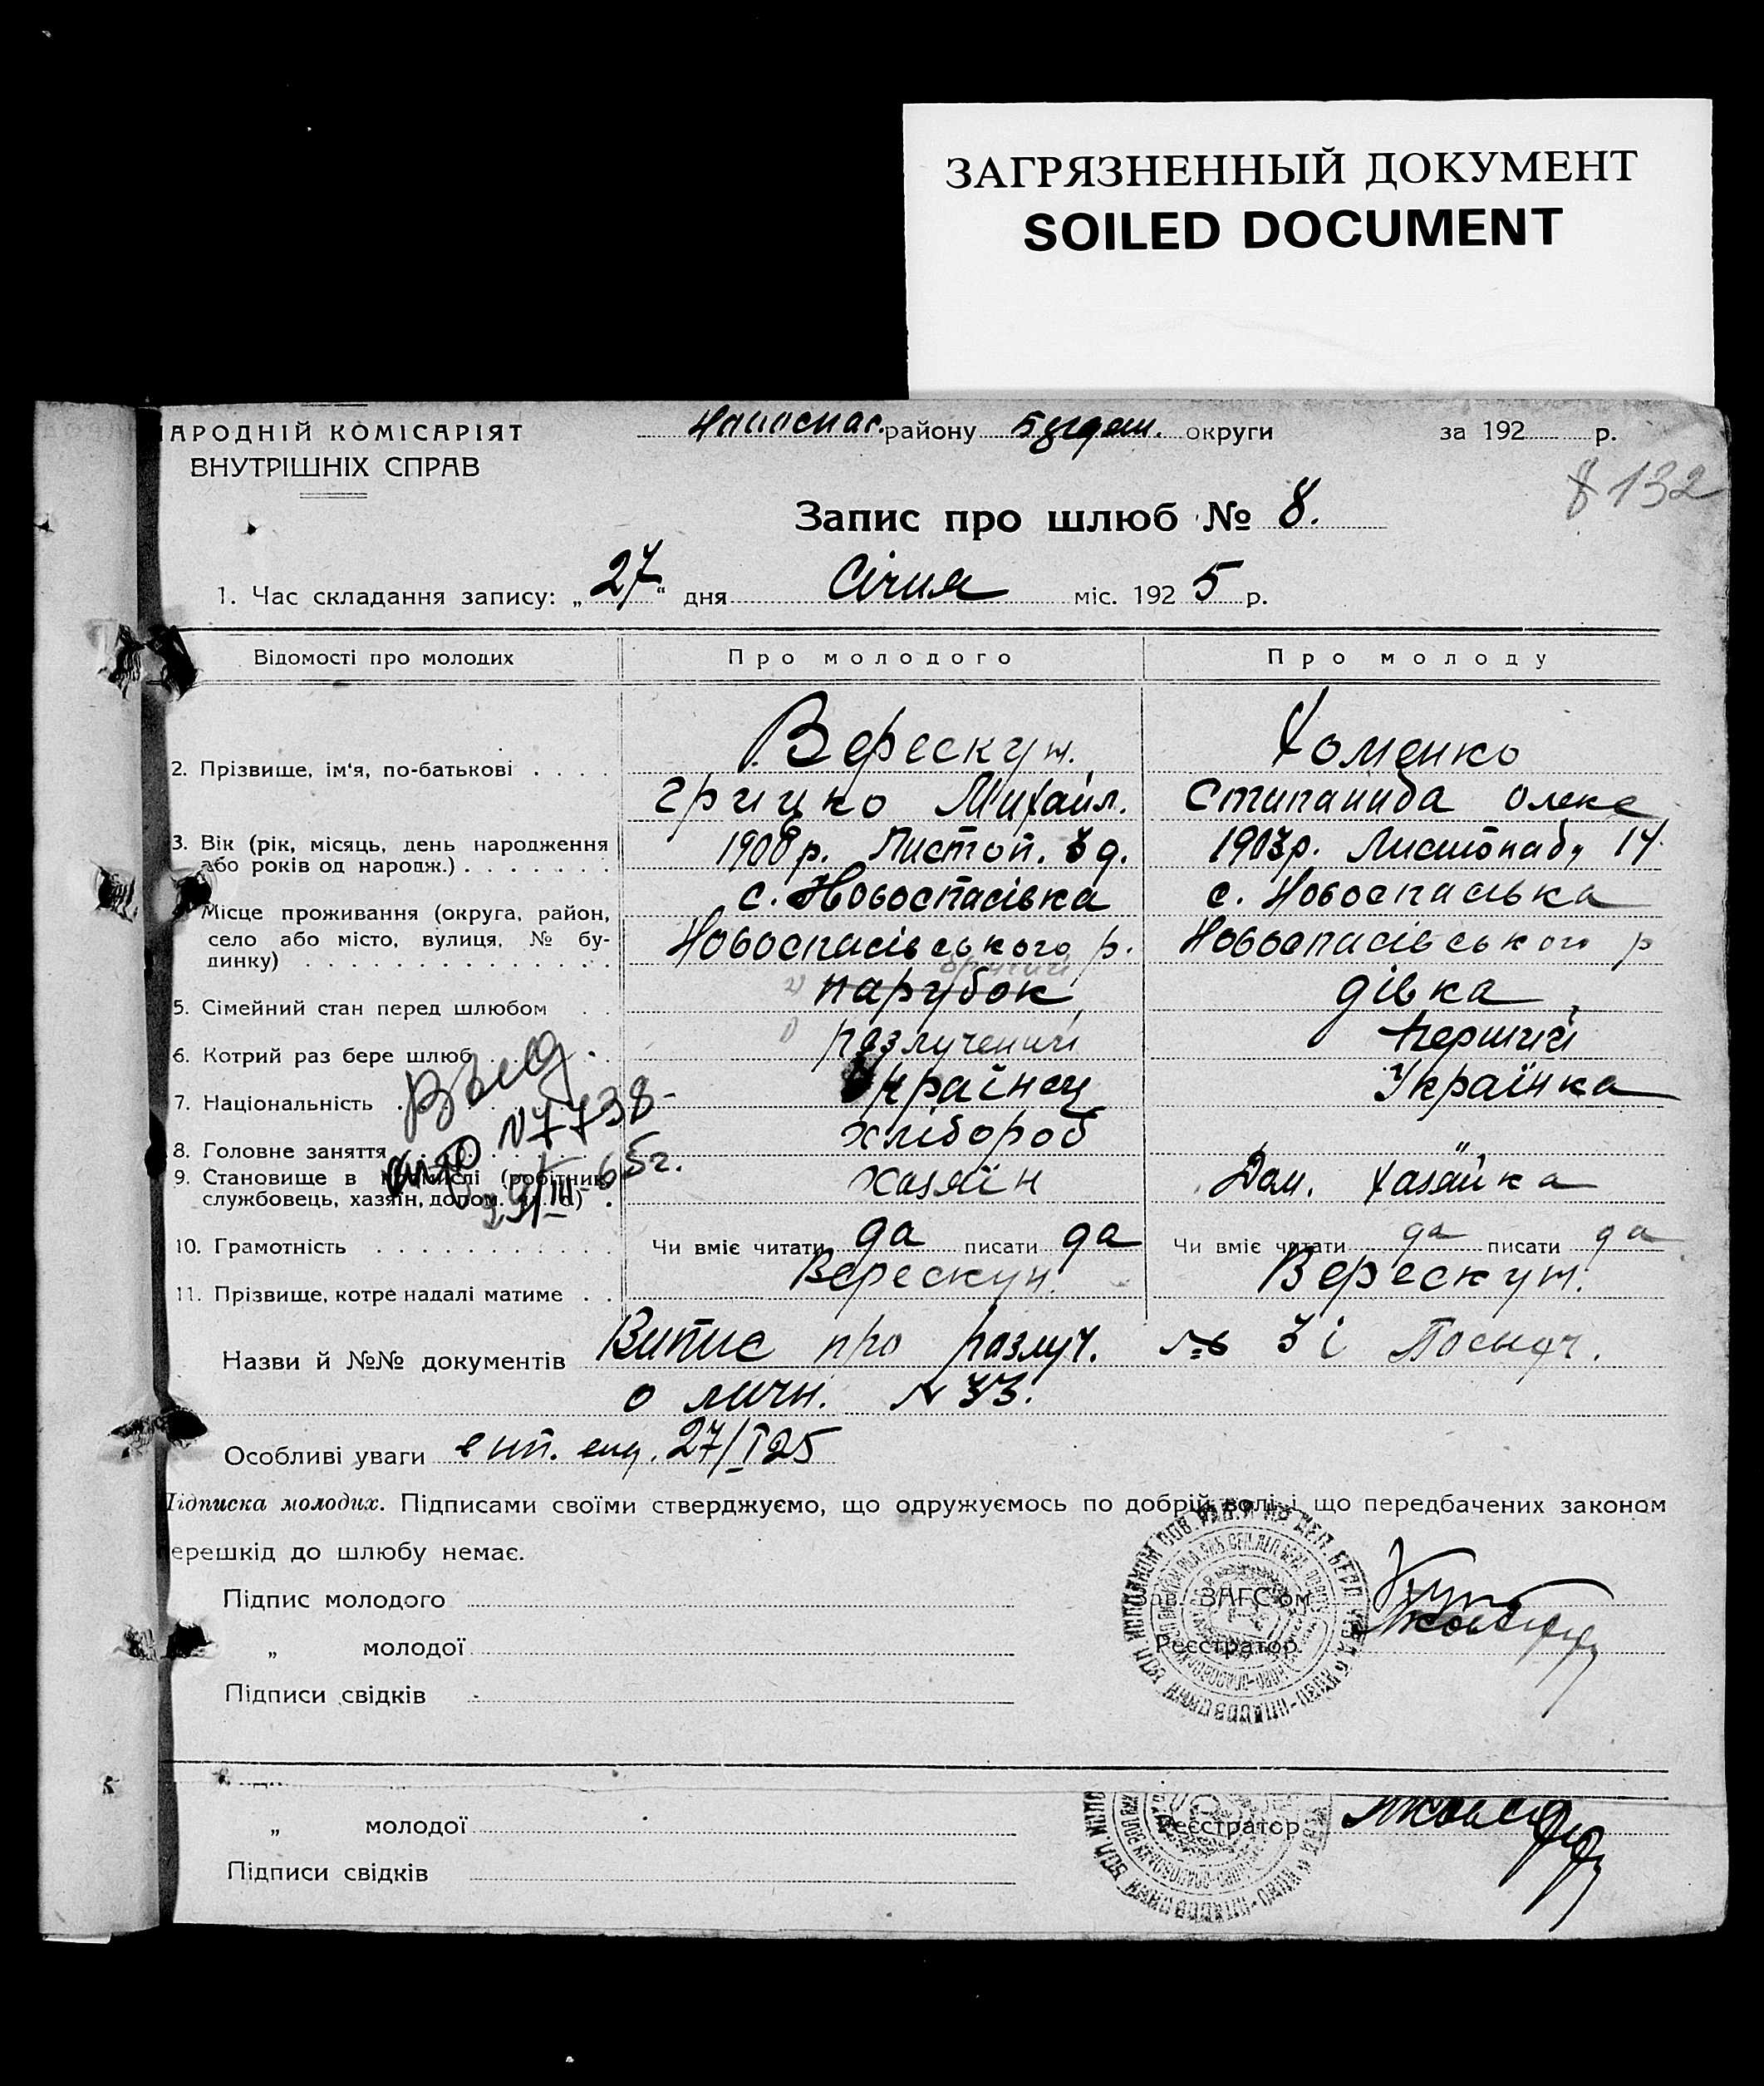 ЗАГРЯЗНЕННЫЙ ДОКУМЕНТ
SOILED DOCUMENT
АРОДНІЙ КОМІСАРІЯТ
ВНУТРІШНІХ СПРАВ
району округи за 192 р.
8 132
Запис про шлюб № 8.
1. Час складання запису: „27“ дня Січня міс. 1925 р.
Відомості про молодих Про молодого Про молоду
2. Прізвище, ім'я, по-батькові Верескун Хоменко
Грицко Михайл. Стипанида Олекс
3. Вік (рік, місяць, день народження 1908 р. Листоп. 3 д. 1903р. Листопад, 14
або років од народж.)
с. Новоспасівка с. Новоспасівка
Місце проживання (округа, район,
село або місто, вулиця, № бу- Новоспасівського р. Новоспасівського р
динку)
5. Сімейний стан перед шлюбом парубок дівка
другий
6. Котрий раз бере шлюб разлучений перший
7. Національність Українец Українка
8. Головне заняття хлібороб "
9. Становище в промислі (робітник, хазяїн Дом. хазяйка
службовець, хазяїн, допом. чл. сі)
N 7738-
29/III-65г.
10. Грамотність Чи вміє читати да писати да Чи вміє читати да писати да
11. Прізвище, котре надалі матиме Верескун. Верескун.
Назви й №№ документів Випис про разлуч. № 3 і Посвідч.
о личн. N 33.
Особливі уваги 27/I 25
Підписка молодих. Підписами своїми стверджуємо, що одружуємось по добрій волі і що передбачених законом
ерешкід до шлюбу немає.
Підпис молодого Зав. ЗАГС'ом
„ молодої Реєстратор
Підписи свідків
„ молодої Реєстратор
Підписи свідків